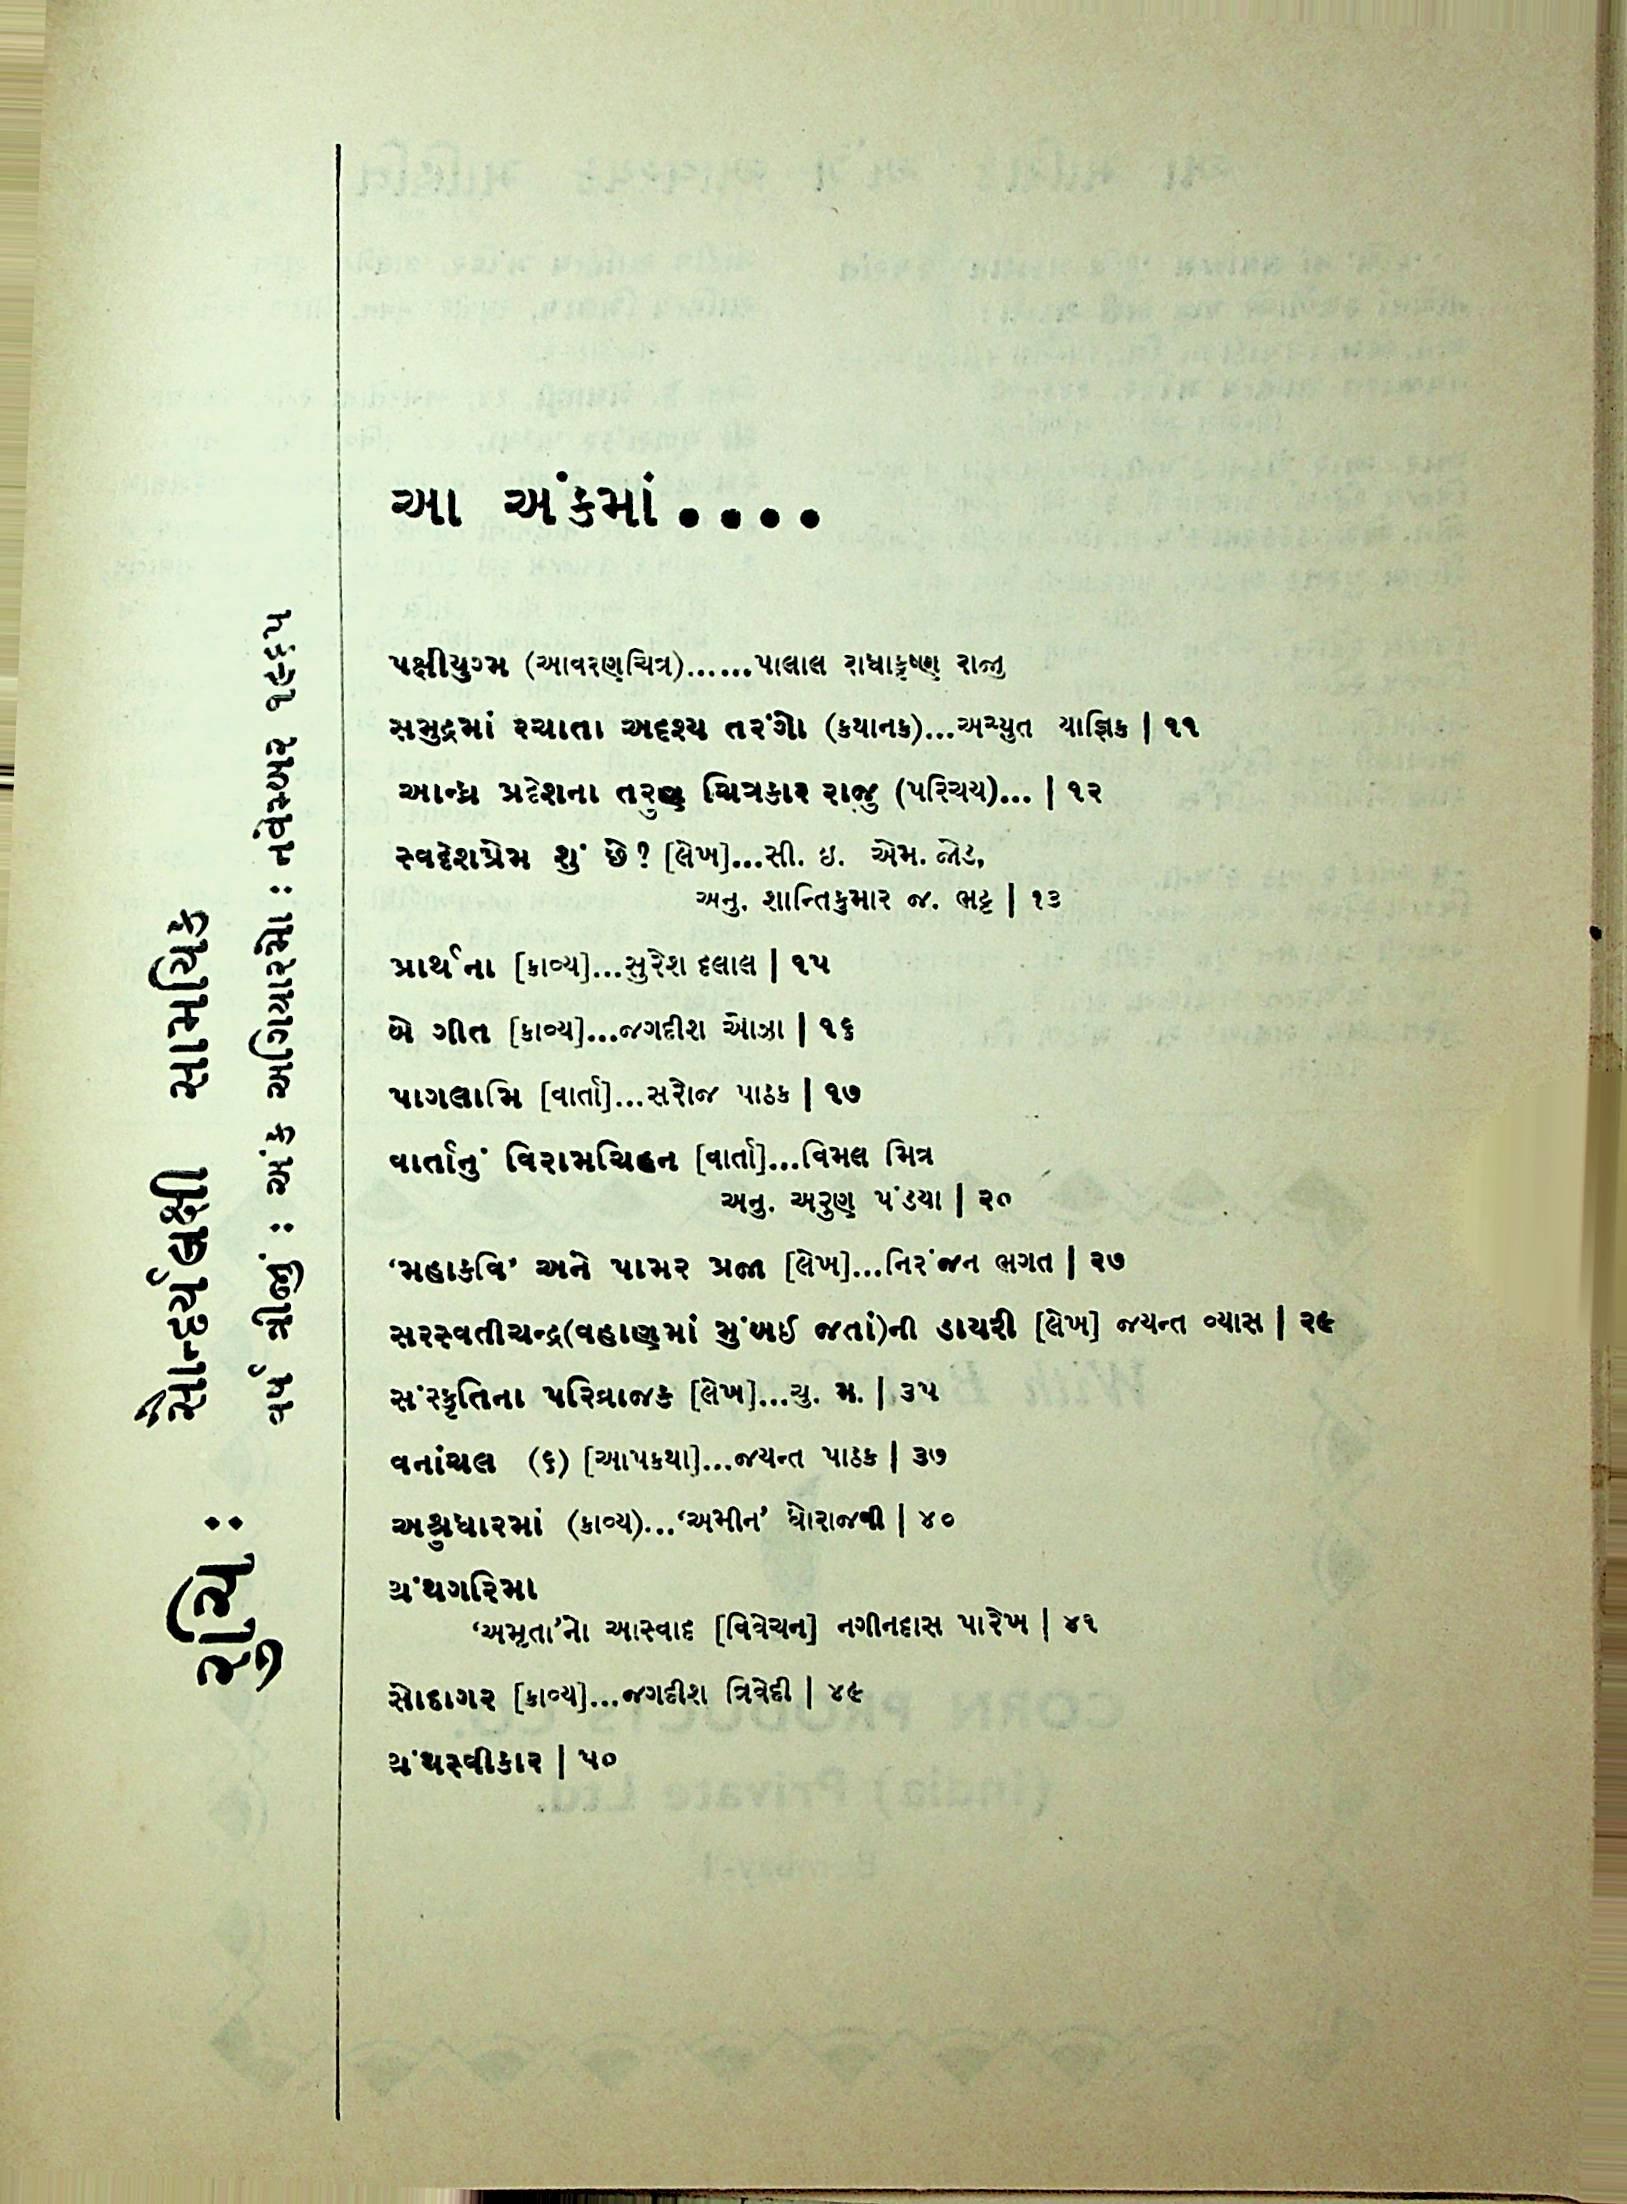 રુચિ :
સૌન્દર્યલક્ષી સામયિક
વર્ષ ત્રીજું : અંક અગિયારમો : નવેમ્બર ૧૯૬૫
આ અંકમાં....
પક્ષીયુગ્મ (આવરણચિત્ર)......પાલાલ રાધાકૃષ્ણ રાજુ
સમુદ્રમાં રચાતા અદૃશ્ય તરંગો (કથાનક)...અચ્યુત યાજ્ઞિક | ૧૧
આન્ધ્ર પ્રદેશના તરુણ ચિત્રકાર રાજુ (પરિચય)... | ૧૨
સ્વદેશપ્રેમ શું છે? [લેખ]...સી. ઇ. એમ. જોડ,
અનુ. શાન્તિકુમાર જ. ભટ્ટ | ૧૩
પ્રાર્થના [કાવ્ય]...સુરેશ દલાલ | ૧૫
બે ગીત [કાવ્ય]...જગદીશ ઓઝા | ૧૬
પાગલામિ [વાર્તા]...સરોજ પાઠક | ૧૭
વાર્તાનું વિરામચિહ્ન [વાર્તા]...વિમલ મિત્ર
અનુ. અરુણ પંડયા | ૨૦
‘મહાકવિ’ અને પામર પ્રજા [લેખ]...નિરંજન ભગત | ૨૭
સરસ્વતીચન્દ્ર(વહાણમાં મુંબઈ જતાં)ની ડાયરી [લેખ] જયન્ત વ્યાસ | ૨૯
સંસ્કૃતિના પરિવ્રાજક [લેખ]...ચુ. મ. | ૩૫
વનાંચલ (૬) [આપકથા]...જયન્ત પાઠક | ૩૭
અશ્રુધારમાં (કાવ્ય)...‘અમીન’ ધોરાજવી | ૪૦
ગ્રંથગરિમા
‘અમૃતા’નો આસ્વાદ [વિવેચન] નગીનદાસ પારેખ | ૪૧
સોદાગર [કાવ્ય]...જગદીશ ત્રિવેદી | ૪૯
ગ્રંથસ્વીકાર | ૫૦